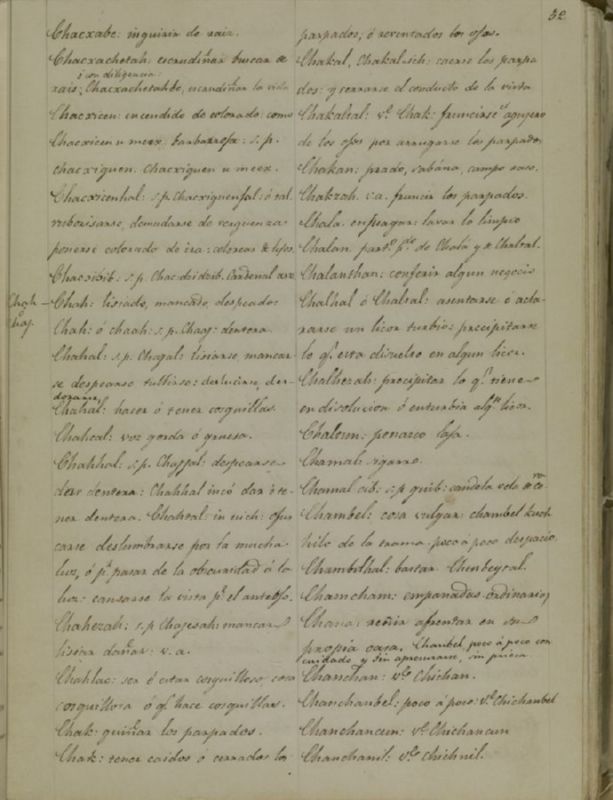 52
Chacxabe: inquirir de raiz.
Chacxachetah: escudriñar buscar de
ó con diligencia:
raiz; Chacxachetahbe, escudriñar la vida
Chacxicen: encendido de colorado: como
Chacxicen u meex: barbarroxa: s.p.
chacxiquen. Chacxiquen u meex.
Chacxicenhal: s.p. Chacxiquenjal: ó tal
ruborizarse, demudarse de verguenza
ponerse colorado de ira: colorear
Chac
Chah: lisiado, mancado, despeado:
Chah - ó Chaj.
Chah: ó chaah: s.p. Chaag: dentera.
Chahal: s.p. Chagal: lisiarse, mancar-
se despearse tullirse: deslucirse, des-
dorarse,
Chahal: hacer ó tener cosquillas.
Chahcal: voz gorda ó gruesa.
Chahhal: s.p. Chajjal: despearse
dar dentera: Chahhal incó dar ó te-
ner dentera. Chahhal: in uich: ofus
carse deslumbrarse por la mucha
luz, ó pr. pasar de la obscuridad á la
luz: cansarse la vista pr. el anteojo.
Chahezah: s.p. Chajesah: mancar
lisiar dañar: v.a.
Chahlac: ser ó estar cosquilloso; cosa
cosquillosa ó qe. hace cosquillas.
Chak: guiñar los parpados.
Chak: tener caidos ó cerrados los
parpados, ó reventados los ojos.
Chakal, Chakal-ich: caerse los parpa
dos: y cerrarse el conducto de la vista
Chakabal: ve. Chak: fruncirse el agujero
de los ojos por arrugarse los parpados
Chakan: prado, sabána, campo raso.
Chakzah. v.a. fruncir los parpados.
Chala: enjuagar: lavar lo limpio
Chalan. part. de Chala y de Chalbal.
Chalanthan: conferir algun negocio
Chalhal ó Chalbal: asentarse ó acla-
rarse un licor turbio: precipitarse
lo qe. esta disuelto en algun licor.
Chalbezah: precipitar lo qe. tiene
en disolucion ó enturbia algn. licor.
Chaltun: penasco laja.
Chamal: sigarro.
Chamal cib: s.p. quib: candela vela de cera
Chambel: cosa vulgar: chambel kuch
hilo de la trama poco á poco despacio
Chambilhal: bastar
Chamcham: empanadas ordinarias
Chana: reñir afrentar en su
propia casa. Chanbel poco á poco con
cuidado y sin apresurarse, sin priesa
Chanchan: ve. Chichan.
Chanchanbel: poco á poco: ve. Chichanbel
Chanchancun: ve. Chichancun
Chanchanil: ve. Chichnil.